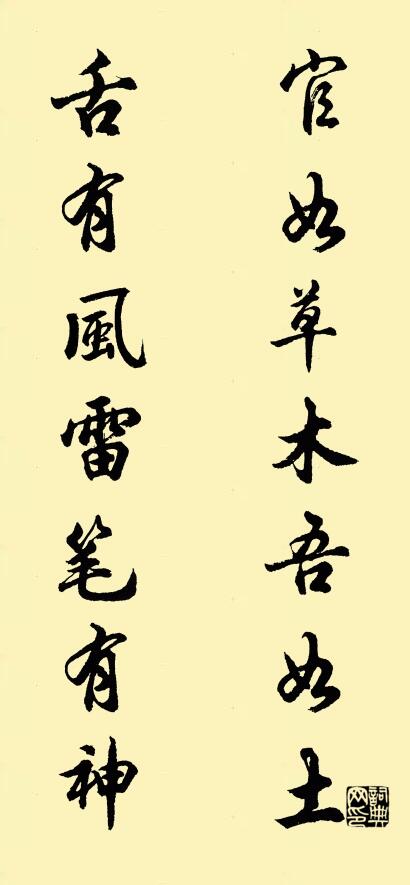 官如草木吾如土
舌有風雷笔有神
詞典网印